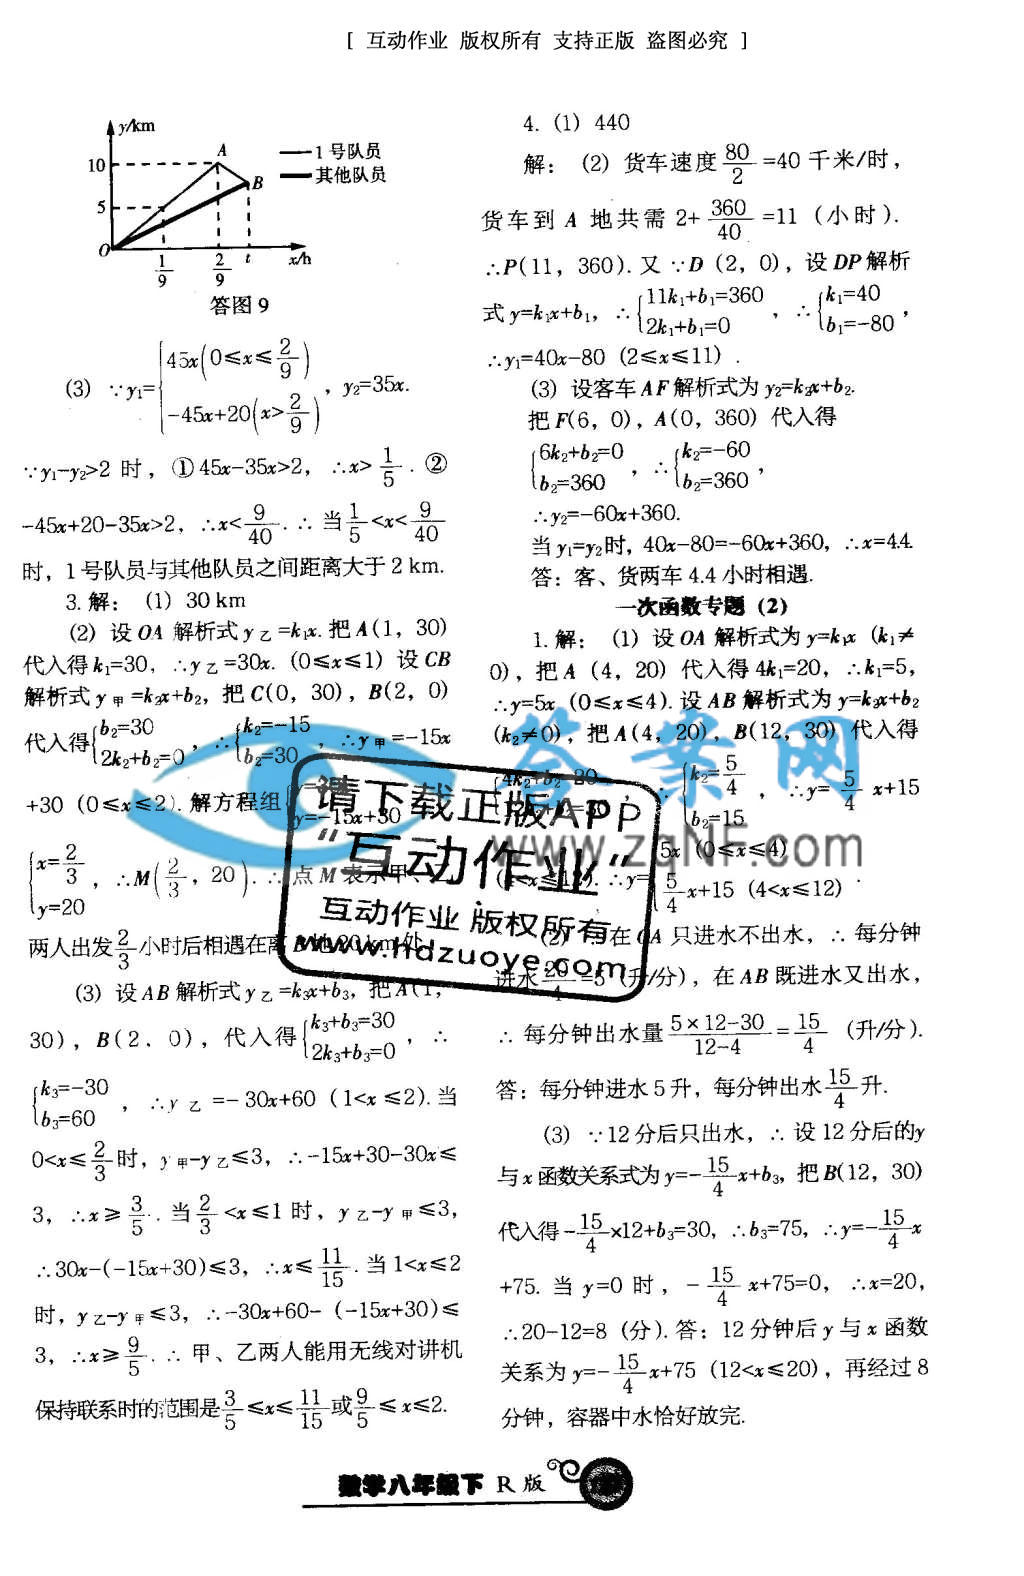 [ 互动作业 版权所有 支持正版 盗图必究 ]
y/km
10
5
O
A
B
1/9
2/9
t
x/h
1号队员
其他队员
答图9
(3) ∵y₁={45x(0≤x≤2/9) -45x+20(x>2/9), y₂=35x.
∵y₁-y₂>2 时, ①45x-35x>2, ∴x>1/5. ②
-45x+20-35x>2, ∴x<9/40. ∴当1/5<x<9/40
时, 1号队员与其他队员之间距离大于2 km.
3. 解: (1) 30 km
(2) 设OA 解析式y乙=k₁x. 把A(1, 30)
代入得k₁=30, ∴y乙=30x. (0≤x≤1) 设CB
解析式y甲=k₂x+b₂, 把C(0, 30), B(2, 0)
代入得{b₂=30 2k₂+b₂=0, ∴{k₂=-15 b₂=30, ∴y甲=-15x
+30 (0≤x≤2). 解方程组{ y=-15x+30
{x=2/3 y=20, ∴M(2/3, 20). ∴点M表示甲、乙
两人出发2/3小时后相遇在离
(3) 设AB解析式y乙=k₃x+b₃, 把A(1,
30), B(2, 0), 代入得{k₃+b₃=30 2k₃+b₃=0, ∴
{k₃=-30 b₃=60, ∴y乙=-30x+60 (1<x≤2). 当
0<x≤2/3时, y甲-y乙≤3, ∴-15x+30-30x≤
3, ∴x≥3/5. 当2/3<x≤1时, y乙-y甲≤3,
∴30x-(-15x+30)≤3, ∴x≤11/15. 当1<x≤2
时, y乙-y甲≤3, ∴-30x+60-(-15x+30)≤
3, ∴x≥9/5. ∴甲、乙两人能用无线对讲机
保持联系时的范围是3/5≤x≤11/15或9/5≤x≤2.
4. (1) 440
解: (2) 货车速度80/2=40千米/时,
货车到A 地共需 2+360/40=11 (小时).
∴P(11, 360). 又∵D (2, 0), 设DP解析
式y=k₁x+b₁, ∴{11k₁+b₁=360 2k₁+b₁=0, ∴{k₁=40 b₁=-80,
∴y₁=40x-80 (2≤x≤11).
(3) 设客车AF解析式为y₂=k₂x+b₂.
把F(6, 0), A(0, 360) 代入得
{6k₂+b₂=0 b₂=360, ∴{k₂=-60 b₂=360,
∴y₂=-60x+360.
当y₁=y₂时, 40x-80=-60x+360, ∴x=4.4.
答: 客、货两车4.4小时相遇.
一次函数专题 (2)
1. 解: (1) 设OA 解析式为y=k₁x (k₁≠
0), 把A (4, 20) 代入得4k₁=20, ∴k₁=5,
∴y=5x (0≤x≤4). 设AB解析式为y=k₂x+b₂
(k₂≠0), 把A(4, 20), B(12, 30) 代入得
{4k₂+b₂=20, ∴{k₂=5/4 b₂=15, ∴y=5/4x+15
(4<x≤12). ∴y={5x (0≤x≤4) 5/4x+15 (4<x≤12).
(2) 在OA 只进水不出水, ∴每分钟
进水20/4=5 (升/分), 在AB既进水又出水,
∴每分钟出水量(5×12-30)/(12-4)=15/4 (升/分).
答: 每分钟进水5升, 每分钟出水15/4升.
(3) ∵12分后只出水, ∴设12分后的y
与x函数关系式为y=-15/4x+b₃, 把B(12, 30)
代入得-15/4×12+b₃=30, ∴b₃=75, ∴y=-15/4x
+75. 当y=0时, -15/4x+75=0, ∴x=20,
∴20-12=8 (分). 答: 12分钟后y与x函数
关系为y=-15/4x+75 (12<x≤20), 再经过8
分钟, 容器中水恰好放完.
答案网
www.zqNF.com
请下载正版APP
"互动作业"
互动作业 版权所有
www.hdzuoye.com
数学八年级下 R版